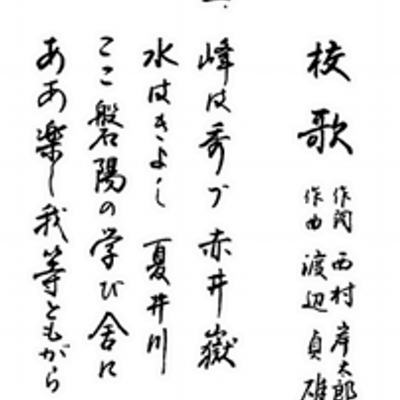 校歌
作詞 西村岸太郎
作曲 渡辺貞雄
一、
峰は秀づ 赤井嶽
水はきよし 夏井川
ここ磐陽の学び舎に
ああ楽し我等ともがら